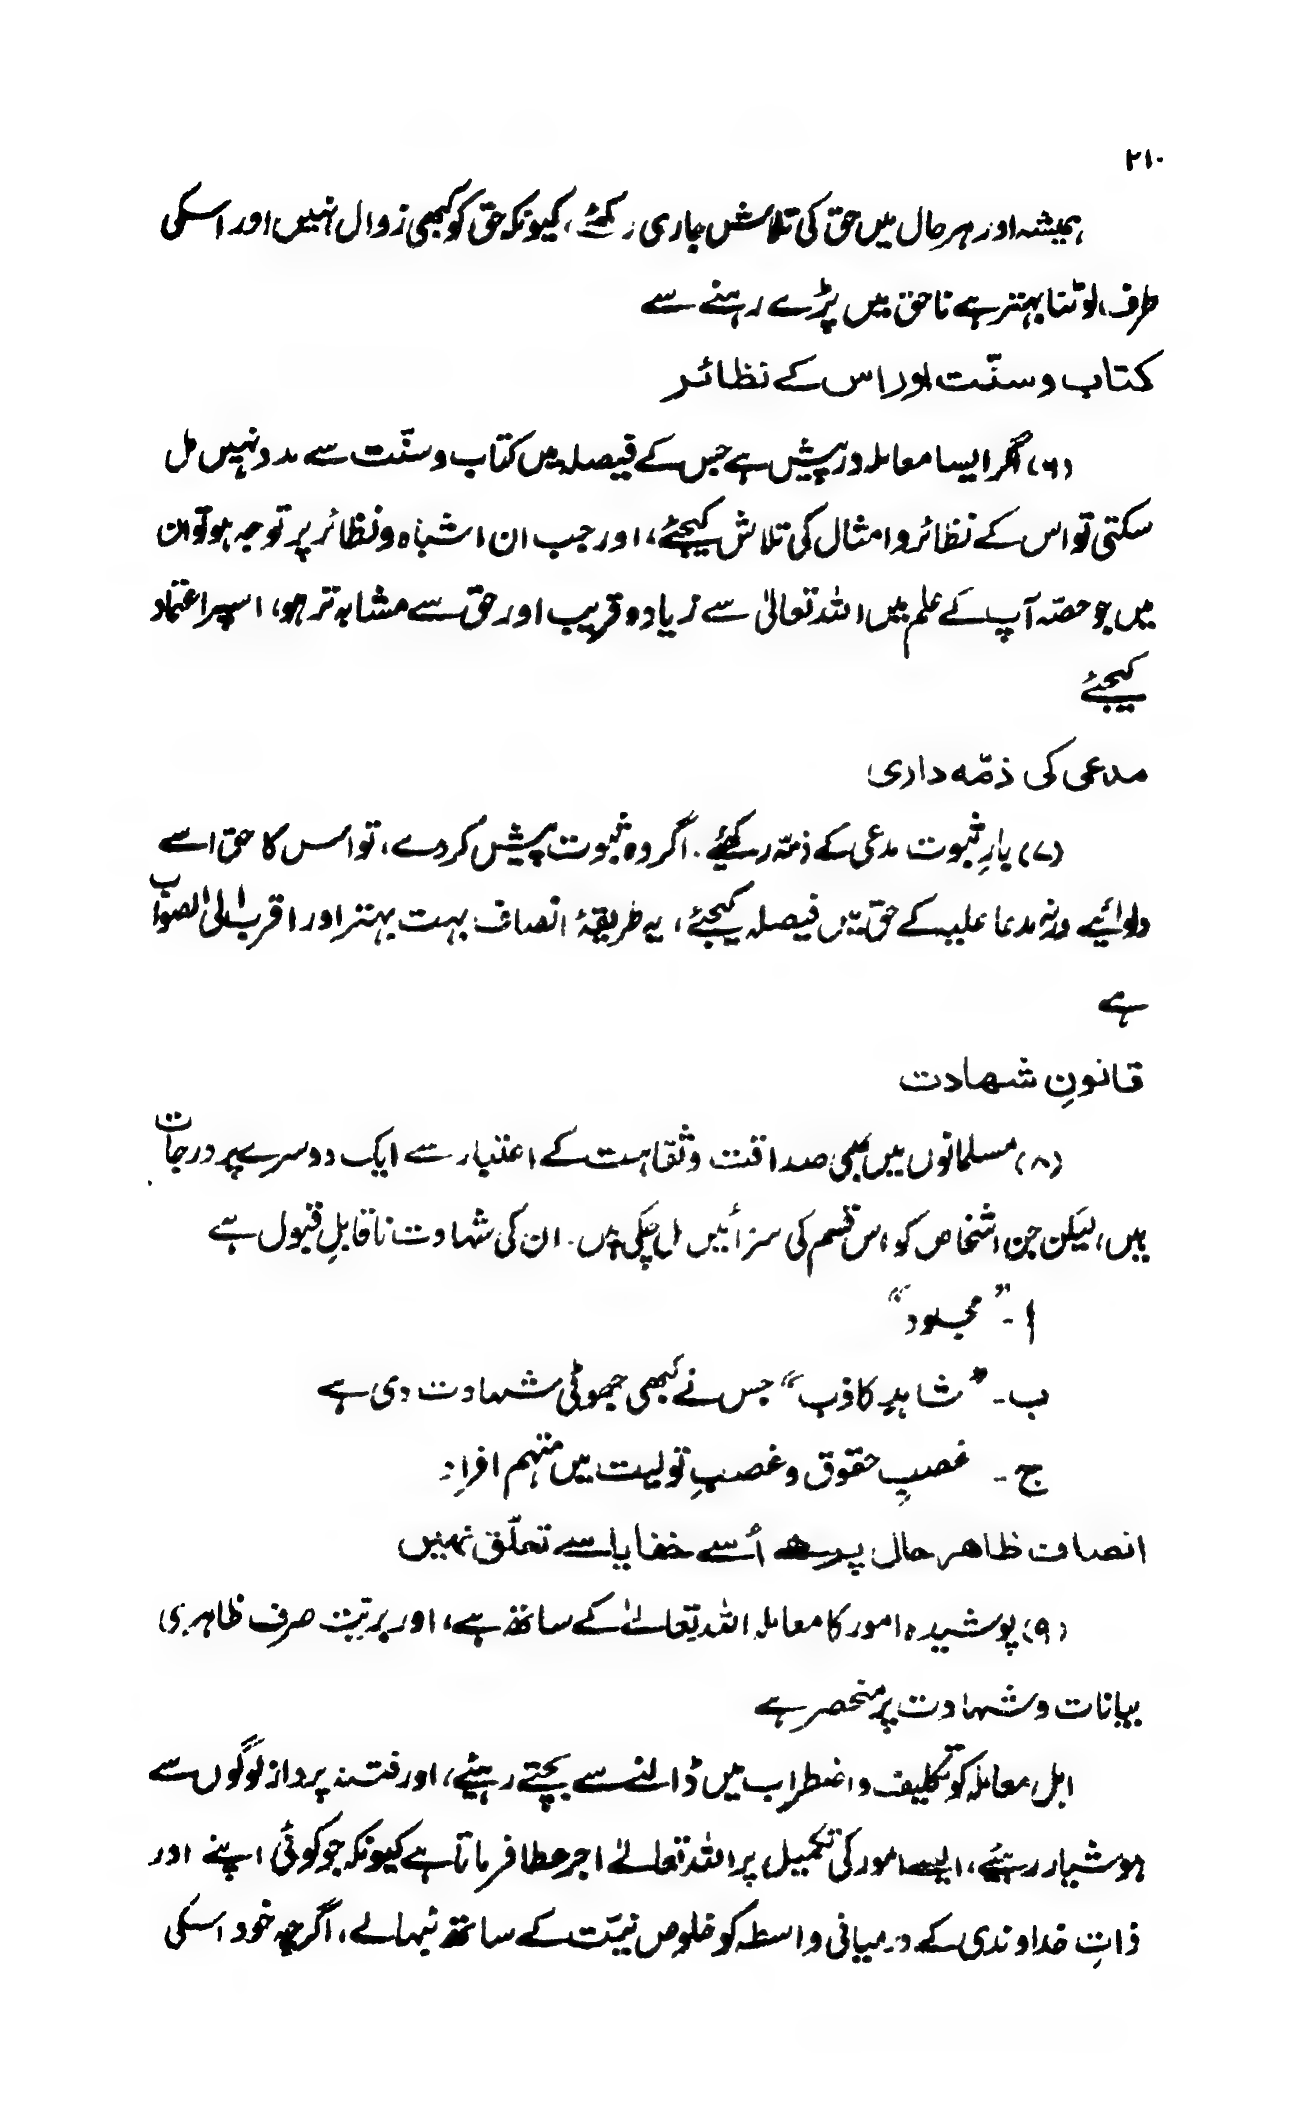 ۲۱۰
ہمیشہ اور ہر حال میں حق کی تلاش جاری رکھئے، کیونکہ حق کو کبھی زوال نہیں اور اسکی
طرف لوٹنا بہتر ہے ناحق میں پڑے رہنے سے
کتاب و سنّت اور اس کے نظائر
(۶) اگر ایسا معاملہ درپیش ہے جس کے فیصلہ میں کتاب و سنّت سے مدد نہیں مل
سکتی تو اس کے نظائر و امثال کی تلاش کیجئے، اور جب ان اشباہ و نظائر پر توجہ ہو تو ان
میں جو حصّہ آپ کے علم میں اللہ تعالیٰ سے زیادہ قریب اور حق سے مشابہ تر ہو، اسپر اعتماد
کیجئے
مدعی کی ذمّہ داری
(۷) بارِ ثبوت مدعی کے ذمّہ رکھئیے۔ اگر وہ ثبوت پیش کر دے، تو اس کا حق اسے
دلوائیے ورنہ مدعا علیہ کے حق میں فیصلہ کیجئے، یہ طریقۂ انصاف بہت بہتر اور اقرب الی الصواب
ہے
قانونِ شہادت
(۸) مسلمانوں میں بھی صداقت و ثقاہت کے اعتبار سے ایک دوسرے پر درجات
ہیں، لیکن جن اشخاص کو اس قسم کی سزائیں مل چکی ہیں۔ ان کی شہادت ناقابلِ قبول ہے
ا۔ ”مجلود“
ب۔ ”شاہدِ کاذب“ جس نے کبھی جھوٹی شہادت دی ہے
ج۔ غصبِ حقوق و غصبِ تولیت میں متہم افراد
انصاف ظاہر حال پر ہے اُسے خفایا سے تعلّق نہیں
(۹) پوشیدہ امور کا معاملہ اللہ تعالےٰ کے ساتھ ہے، اور بریّت صرف ظاہری
بیانات و شہادت پر منحصر ہے
اہل معاملہ کو تکلیف و اضطراب میں ڈالنے سے بچتے رہئیے، اور فتنہ پرداز لوگوں سے
ہوشیار رہئیے، ایسے امور کی تکمیل پر اللہ تعالےٰ اجر عطا فرماتا ہے کیونکہ جو کوئی اپنے اور
ذاتِ خداوندی کے درمیانی واسطہ کو خلوص نیّت کے ساتھ نبہالے، اگرچہ خود اسکی